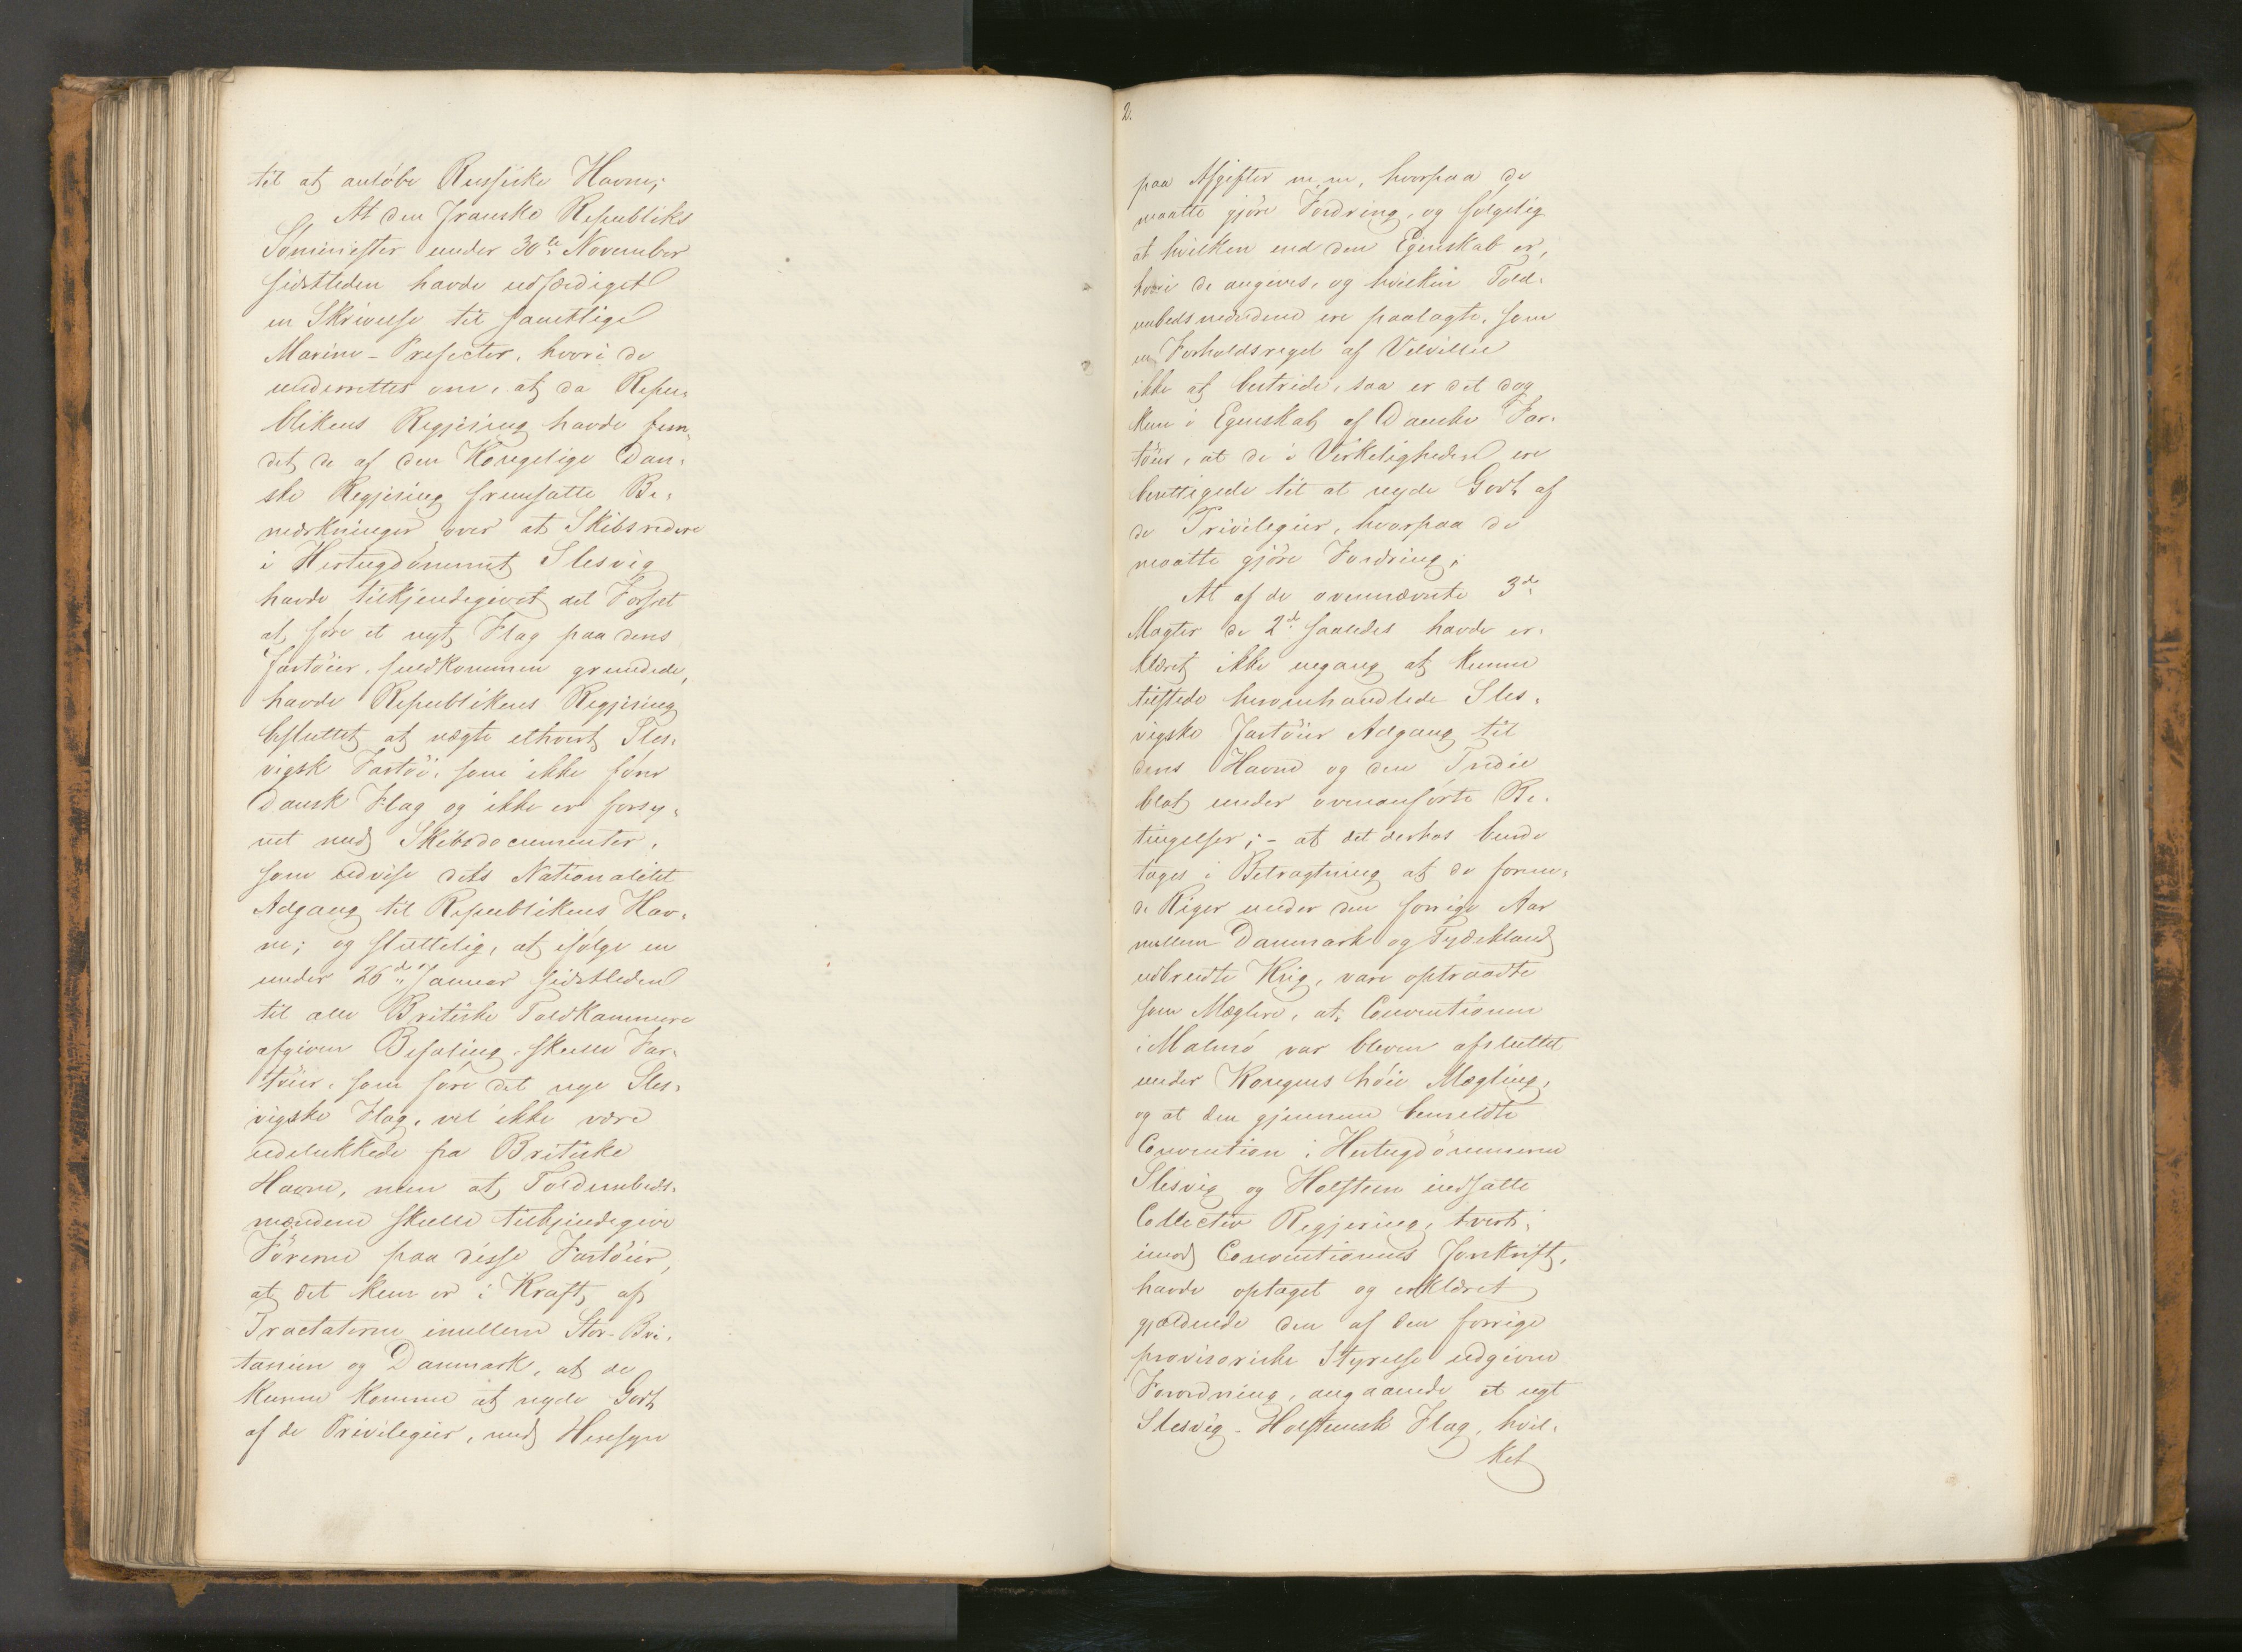 til at anlöbe Russiske Havne;
At den Franske Republiks
Söminister under 30te November
sidstleden havde udfærdiget
en Skrivelse til samtlige
Marine-Prefecter, hvori de
underrettes om, at da Repu-
blikens Regjering havde fun-
det de af den Kongelige Dan-
ske Regjering fremsatte Be-
mærkninger över at Skibsredere
i Hertugdömmet Slesvig
havde tilkjendegivet det Forsæt
at före et nyt Flag paa deres
Fartöier, fuldkommen grundede,
havde Republikens Regjering
besluttet at nægte ethvert Sles-
vigsk Fartöi, som ikke förer
Dansk Flag og ikke er forsy-
net med Skibsdocumenter,
som udvise dets Nationalitet
Adgang til Republikens Hav-
ne; og sluttelig, at ifölge en
under 26de Januar sidstleden
til alle Britiske Toldkammere
afgiven Befaling, skulle Far-
töier, som före det nye Sles-
vigske Flag, vel ikke være
udelukkede fra Britiske
Havne, men at Toldembeds-
mændene skulle tilkjendegive
Förerne paa disse Fartöier,
at det kun er i Kraft af
Tractaterne imellem Stor-Bri-
tanien og Danmark, at de
kunne komme at nyde Godt
af de Privilegier, med Hensyn
2.
paa Afgifter m.m, hvorpaa de
maatte gjöre Fordring, og fölgelig
at hvilken end den Egenskab er,
hvori de angives, og hvilken Told-
embedsmændene ere paalagte, som
en Forholdsregel af Velvillie
ikke at bestride, saa er det dog
kun i Egenskab af Danske Far-
töier, at de i Virkeligheden ere
berettigede til at nyde Godt af
de Privilegier, hvorpaa de
maatte gjöre Fordring;
At af de ovennævnte 3de
Magter de 2de saaledes havde er-
klæret ikke engang at kunne
tilstede heromhandlede Sles-
vigske Fartöier Adgang til
deres Havne og den Tredie
blot under ovenanförte Be-
tingelser; - at det derhos burde
tages i Betragtning at de forene-
de Riger under den forrige Aar
mellem Danmark og Tydskland
udbrudte Krig, vare optraadte
som Mæglere, at Conventionen
i Malmö var bleven afsluttet
under Kongens höie Mægling,
og at den gjennem bemeldte
Convention i Hertugdömmerne
Slesvig og Holsteen indsatte
Collectiv Regjering, tvert-
imod Conventionens Forskrift,
havde optaget og erklæret
gjældende den af den forrige
provisoriske Styrelse udgivne
Forordning, angaaende et nyt
Slesvig-Holsteensk Flag, hvil-
ket